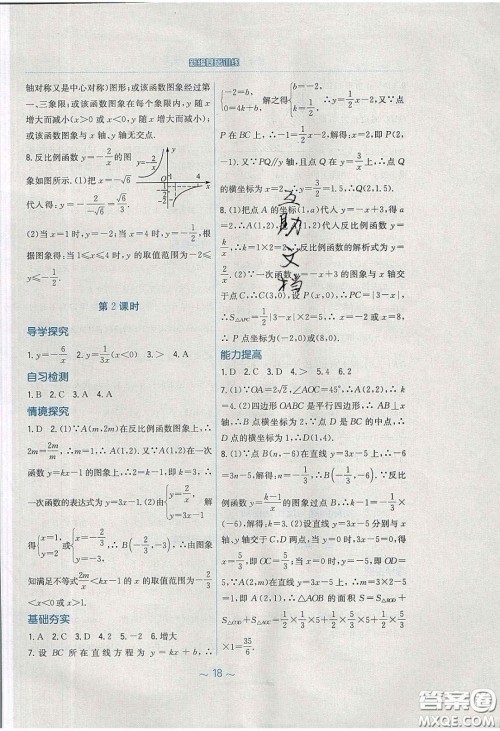 新编基础训练
轴对称又是中心对称)图形;或该函数图象经过第
一、三象限;或该函数图象在每个象限内,y 随 x
增大而减小(x>0)或(x<0),y 随 x 增大而
增大而减小;或该函数图象与 x 轴、y 轴无交点.
8. 反比例函数 y=-2/x 的图
象如图所示. (1)把 x=-√6
代入得:y=-2/-√6=√6/3.
(2)当 x=1 时,y=-2,当 x=4 时,y=-1/2,由
图象得,当 1≤x≤4 时,y 的取值范围为-2≤
y≤-1/2.
第 2 课时
导学探究
1. y=-6/x 2. y=1/3x(x<0) 3. > 4. A
自习检测
1. B 2. C 3. A 4. A
情境探究
1. D 2. (1)∵A(m,2m)在反比例函数图象上,
∴2m=2m/m,∴m=1,∴A(1,2). 又∵A(1,2)在一次
函数 y=kx-1 的图象上,∴2=k-1,即 k=3,∴
一次函数的表达式为 y=3x-1. (2)由{y=2/x, y=3x-1
知满足不等式 2m/x<kx-1 的 x 的取值范围为-2/3
<x<0 或 x>1.
基础夯实
1. A 2. C 3. D 4. 2 5. -2 6. 增大
7. 设 BC 所在直线方程为 y=kx+b,∴
{-2=b, 0=4k+b, 解之得{b=-2, k=1/2, ∴y=1/2x-2. 又∵点
P 在 BC 上,∴-1=1/2x-2,解得:x=2,即 P(2,
-1). 又∵PQ//y 轴,且点 Q 在 y=3/x 图象上,点 Q
的横坐标为 x=2,∴y=3/2=1.5,∴Q(2,1.5).
8. (1)把点 A 的坐标(1,a)代入 y=-x+3,得 a
=2,∴A(1,2),把 A(1,2)代入反比例函数 y=
k/x,∴k=1×2=2;∴反比例函数的解析式为 y=
2/x. (2)∵一次函数 y=-x+3 的图象与 x 轴交
于点 C,∴C(3,0),设 P(x,0),∴PC=|3-x|,
∴S△APC=1/2|3-x|×2=5,∴x=-2 或 x=8,
∴P 点坐标为(-2,0)或(8,0).
能力提高
1. D 2. C 3. D 4. > 5. 4 6. 2
7. (1)∵OA=2√2,∠AOC=45°.∴A(2,2),∴k
=4. (2)四边形 OABC 是平行四边形,∴AB⊥x
轴,∴B 的横坐标为 2,∵点 D 是 BC 的中点,∴
D 点的横坐标为 1,∴D(1,4).
8. (1)∵点 B(n,-6)在直线 y=3x-5 上,∴-6
=3n-5,解得:n=-1/3,∴B(-1/3,-6),∵反比
例函数 y=k-1/x 的图象过点 B,∴k-1=-1/3×
(-6),解得:k=3. (2)设直线 y=3x-5 分别与 x
轴、y 轴交于 C、D,当 y=0 时,3x-5=0,x=
5/3,即 OC=5/3,当 x=0 时,y=-5,即 OD=5,
∵A(2,m)在直线 y=3x-5 上,∴m=3×2-5
=1,即 A(2,1),∴△AOB 的面积 S=S△BOD+
～ 18 ～
互助文档
答案圈
MXQE.COM